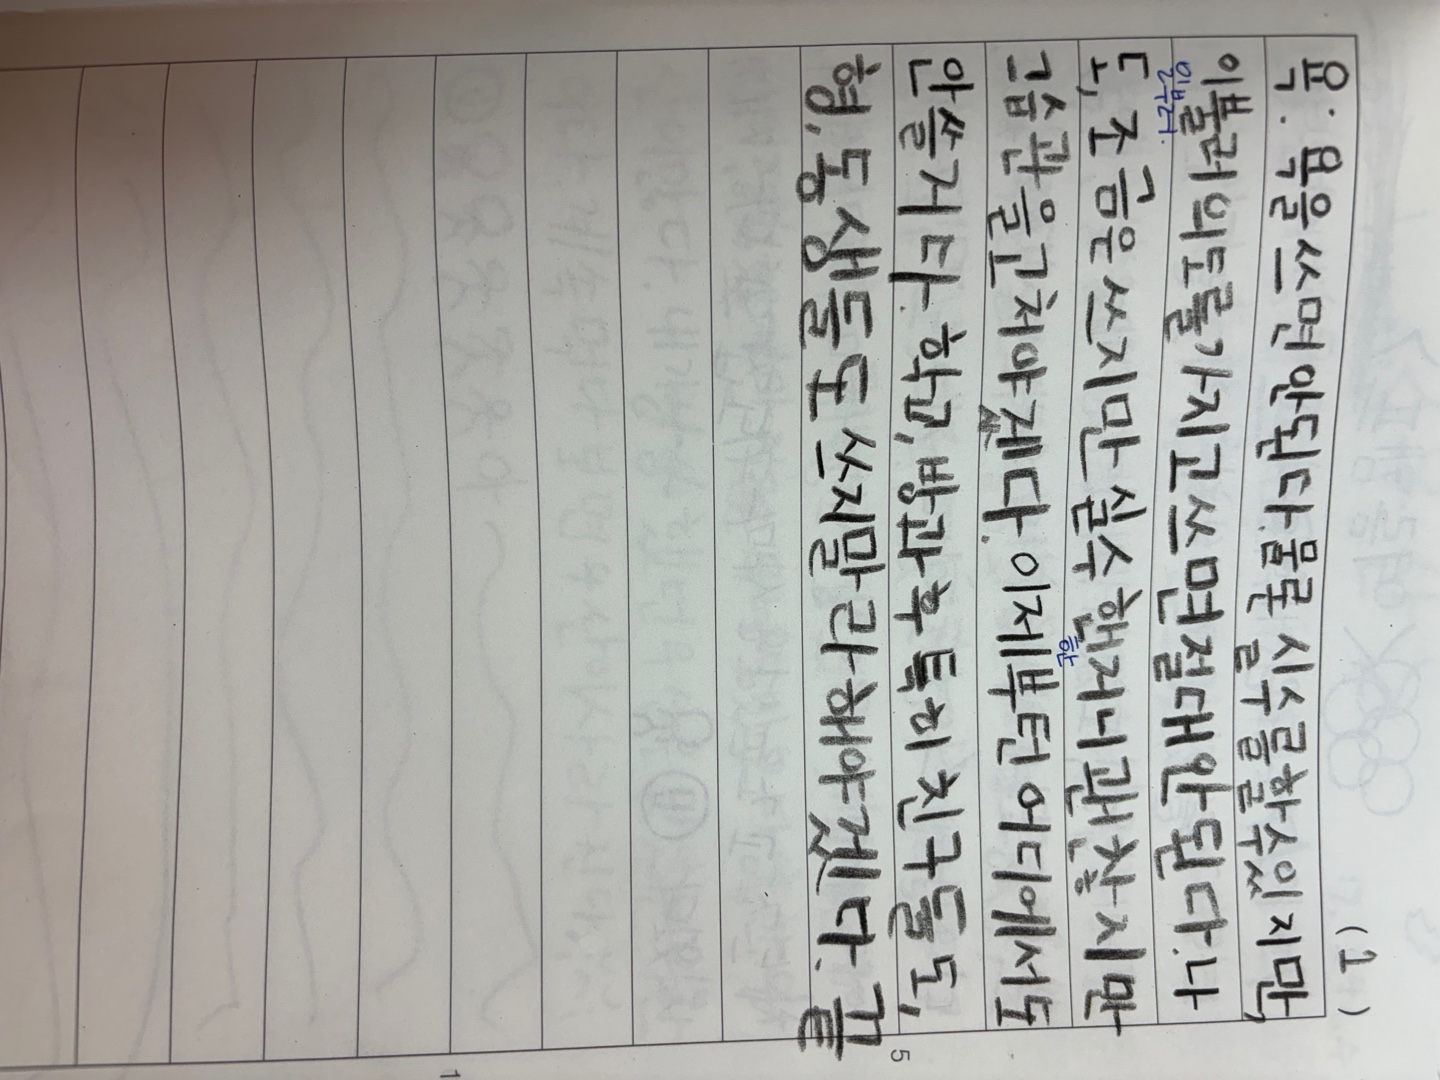 (1)
욕: 욕을 쓰면 안된다. 물론 실수를 할 수 있지만,
이 불러의도를 가지고 쓰면 절대 안된다. 나
일부러.
도, 조금은 쓰지만 실수 한거니 괜찮지만
한
그 습관을 고처야 겠다. 이제부턴 어디에서도
안쓸거다. 학교, 방과후 특히 친구들도,
형, 동생들도 쓰지말라 해야겠다. 끝
5
1